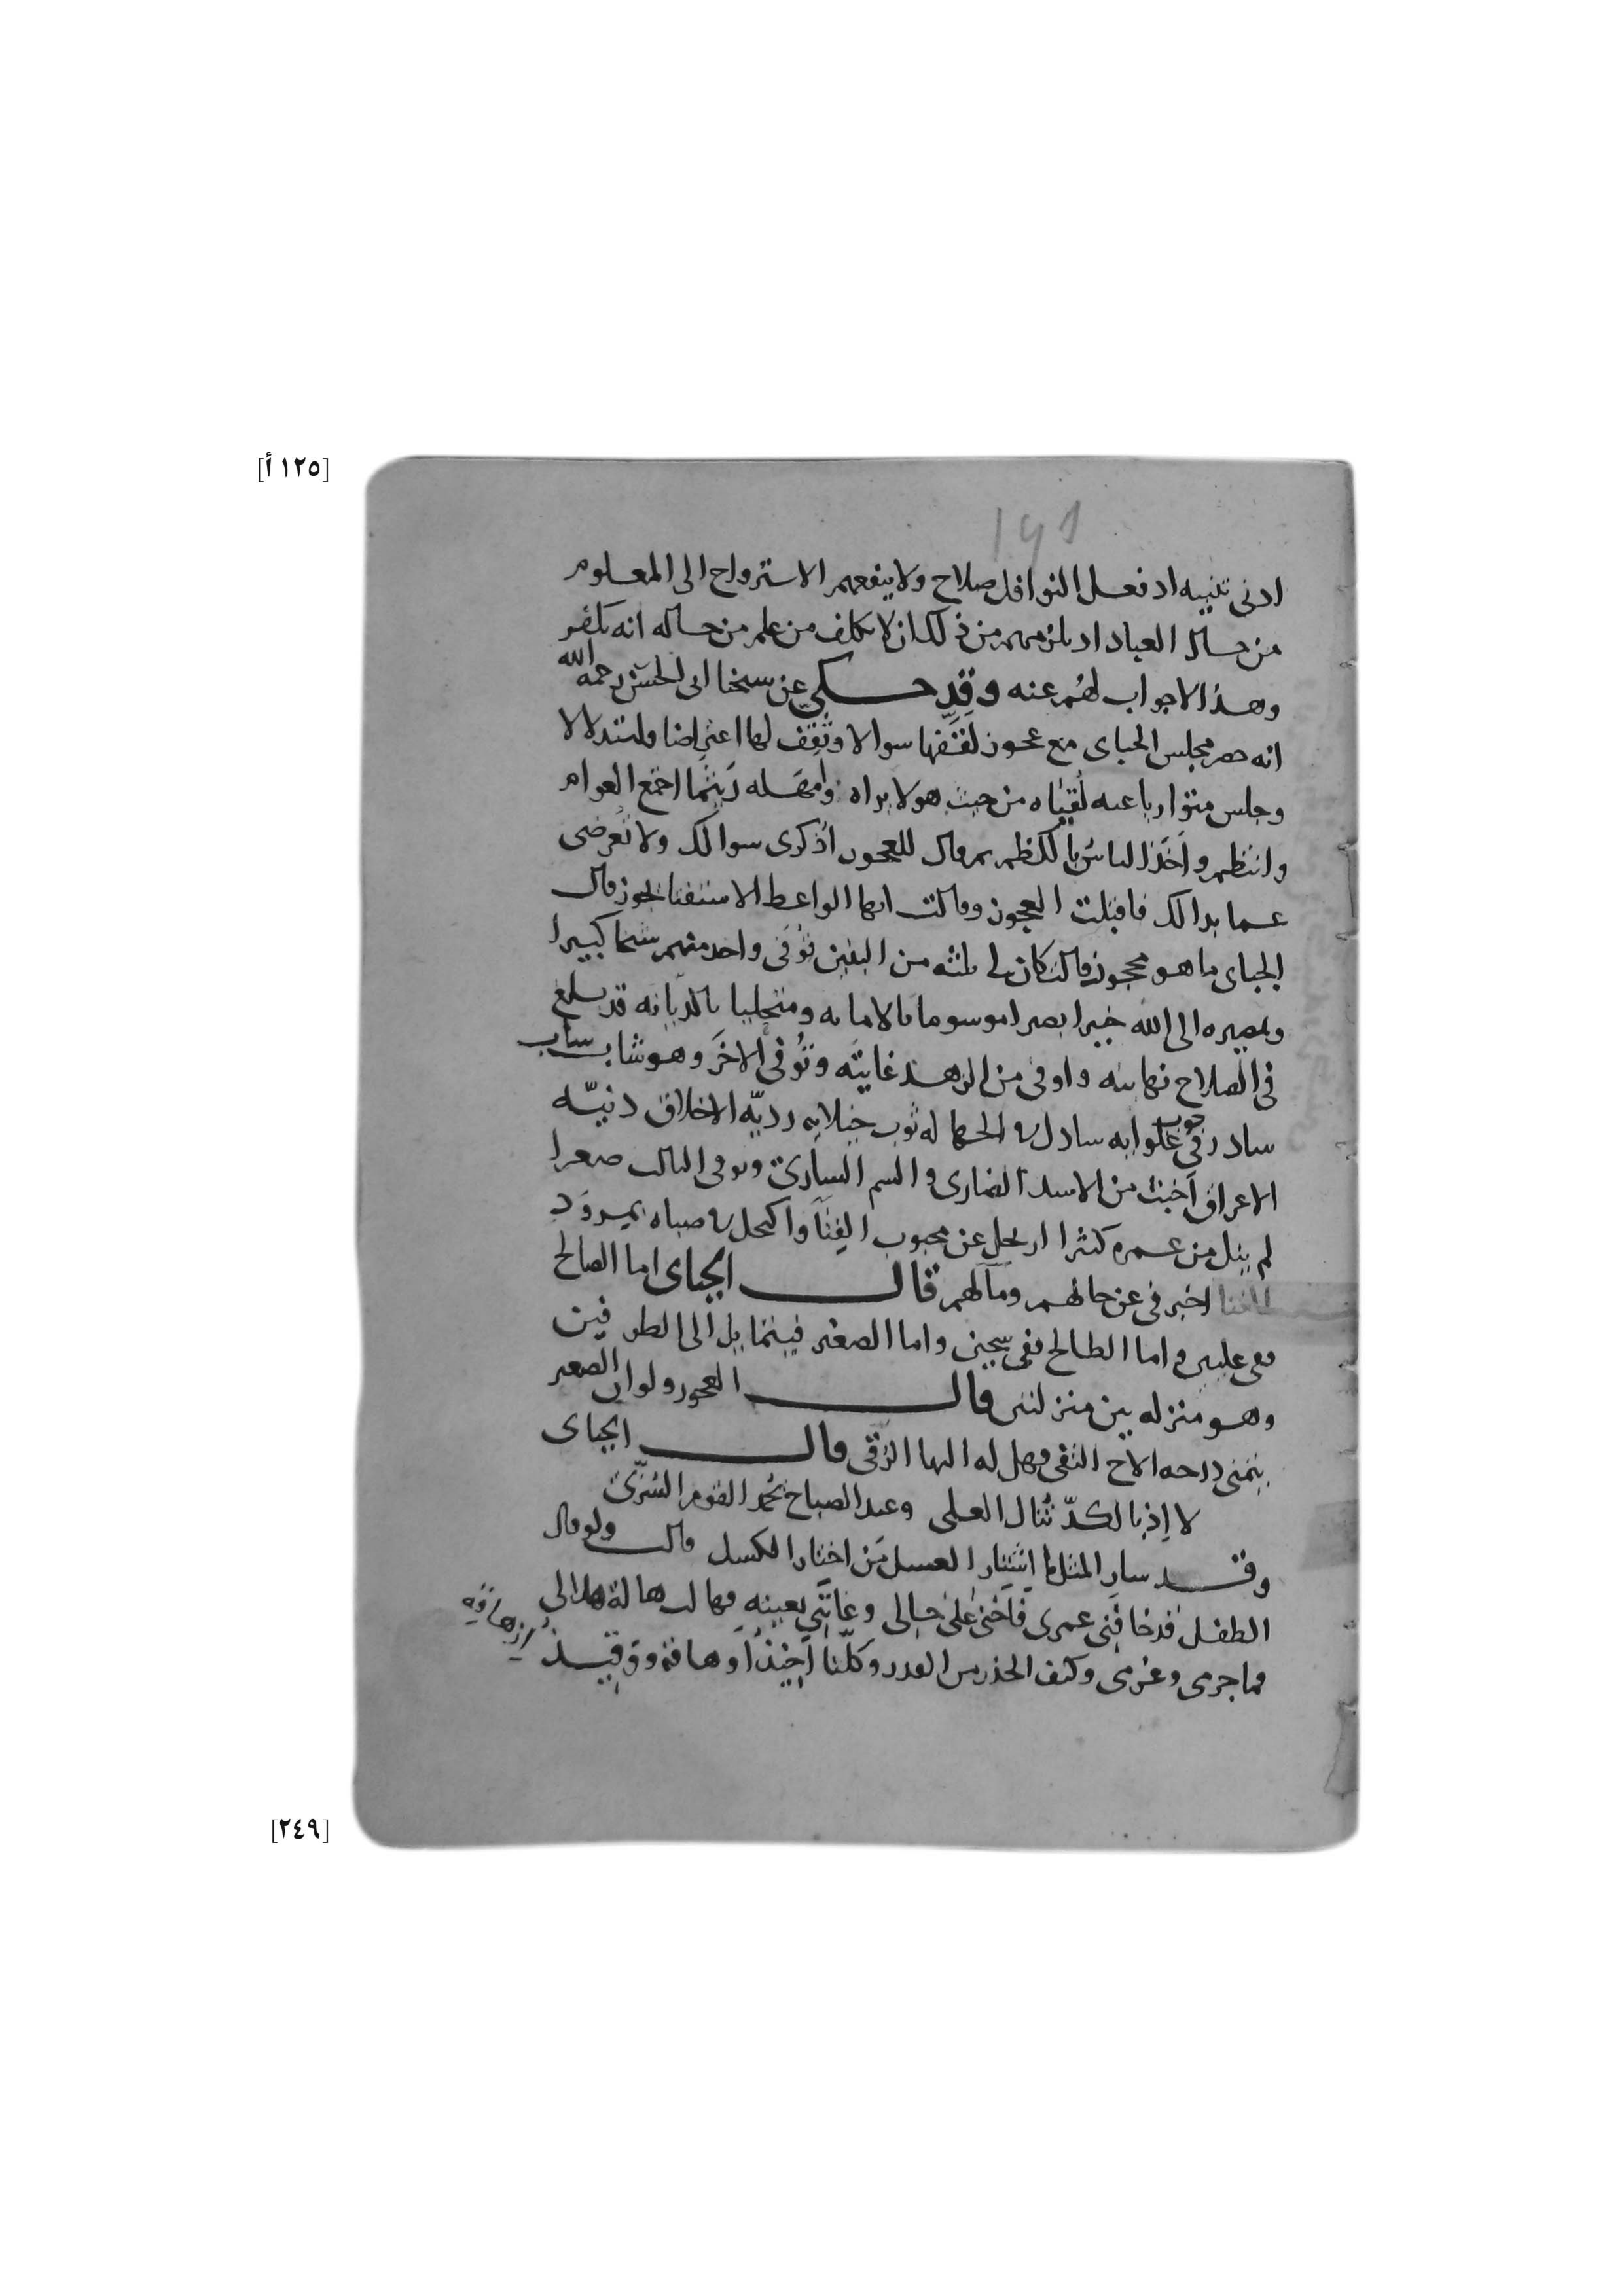 [١٢٥ أ]
191
ادنى تنبيه اد فعل النوافل صلاح ولا ينفعهم الاسترواح الى المعلوم
من حال العباد اد يلزمهم من ذلك ان لا يكلف من علم من حاله انه يكفر
وهذا لا جواب لهم عنه وقد حكى عن شيخنا ابى الحسن رحمه الله
انه حضر مجلس الجباى مع عجوز لقنها سوالا وثقف لها اعتراضا واستدلالا
وجلس متواريا عنه من حيث هو لا يراه وامهله ريثما اجتمع العوام
وانتظم واخذ الناس بالكظم ثم قال للعجوز اذكرى سوالك ولا تعرضى
عما بدا لك فاقبلت العجوز وقالت ايها الواعظ الاستفتا يجوز قال
الجباى ما هو محجوز قالت كان لى ثلثه من البنين توفى واحد منهم شيخا كبيرا
وبمصيره الى الله خبيرا بصيرا موسوما بالامانه ومتحليا بالديانه قد بلغ
فى الصلاح نهايته واوفى من الزهد غايته وتوفى الاخر وهو شاب
سادر فى غلوايه سادل ثوب خيلايه ردية الاخلاق دنيه
الاعراق اخبث من الاسد الضارى و السم السارى وتوفى الثالث صغيرا
لم ينل من عمره كثيرا ارتحل عن محبوب الفنا واكتحل صباه بميرود
اخبرنى عن حالهم ومآلهم قال الجباى اما الصالح
ففى عليين واما الطالح ففى سجين واما الصغير فيتمايل الى الطرفين
وهو منزله بين منزلتين قالت العجوز ولو ان الصغير
يتمنى درجه الاخ التقى فهل له اليها الرقى قال الجباى
لا اذ بالكد تنال العلى وعند الصباح يحمد القوم السرى
وقد سار المثل ما اشتار العسل من اختار الكسل قالت ولو قال
الطفل قد خاننى عمرى فاخنى على حالى وعاننى بعينه
فما جرمى وغرمى وكيف الحذر من القدر وكلنا
[٢٤٩]